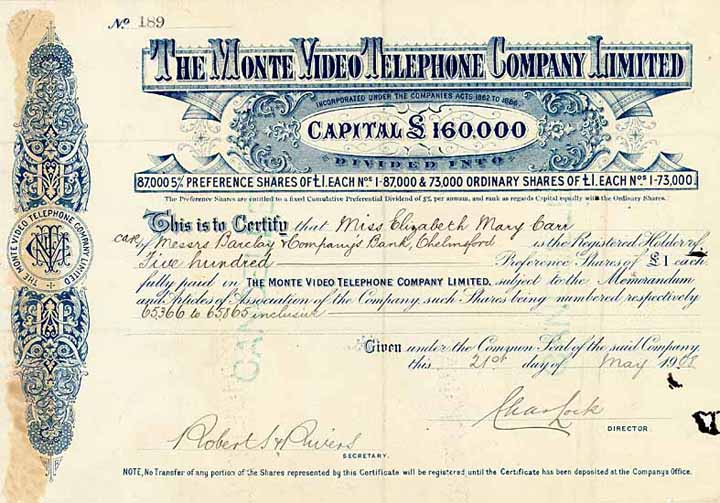 No. 189
THE MONTE VIDEO TELEPHONE COMPANY LIMITED
INCORPORATED UNDER THE COMPANIES ACTS 1862 TO 1886
CAPITAL £160,000
DIVIDED INTO
87,000 5% PREFERENCE SHARES OF £1. EACH Nos 1-87,000 & 73,000 ORDINARY SHARES OF £1. EACH Nos 1-73,000
The Preference Shares are entitled to a fixed Cumulative Preferential Dividend of 5% per annum, and rank as regards Capital equally with the Ordinary Shares.
This is to Certify that Miss Elizabeth Mary Carr
care of Messrs Barclay & Company's Bank, Chelmsford is the Registered Holder of
Five hundred Preference Shares of £1 each
fully paid in THE MONTE VIDEO TELEPHONE COMPANY LIMITED, subject to the Memorandum
and Articles of Association of the Company, such Shares being numbered respectively
65366 to 65865 inclusive
Given under the Common Seal of the said Company
this 21st day of May 1908
DIRECTOR.
SECRETARY.
NOTE, No Transfer of any portion of the Shares represented by this Certificate will be registered until the Certificate has been deposited at the Company's Office.
THE MONTE VIDEO TELEPHONE COMPANY LIMITED